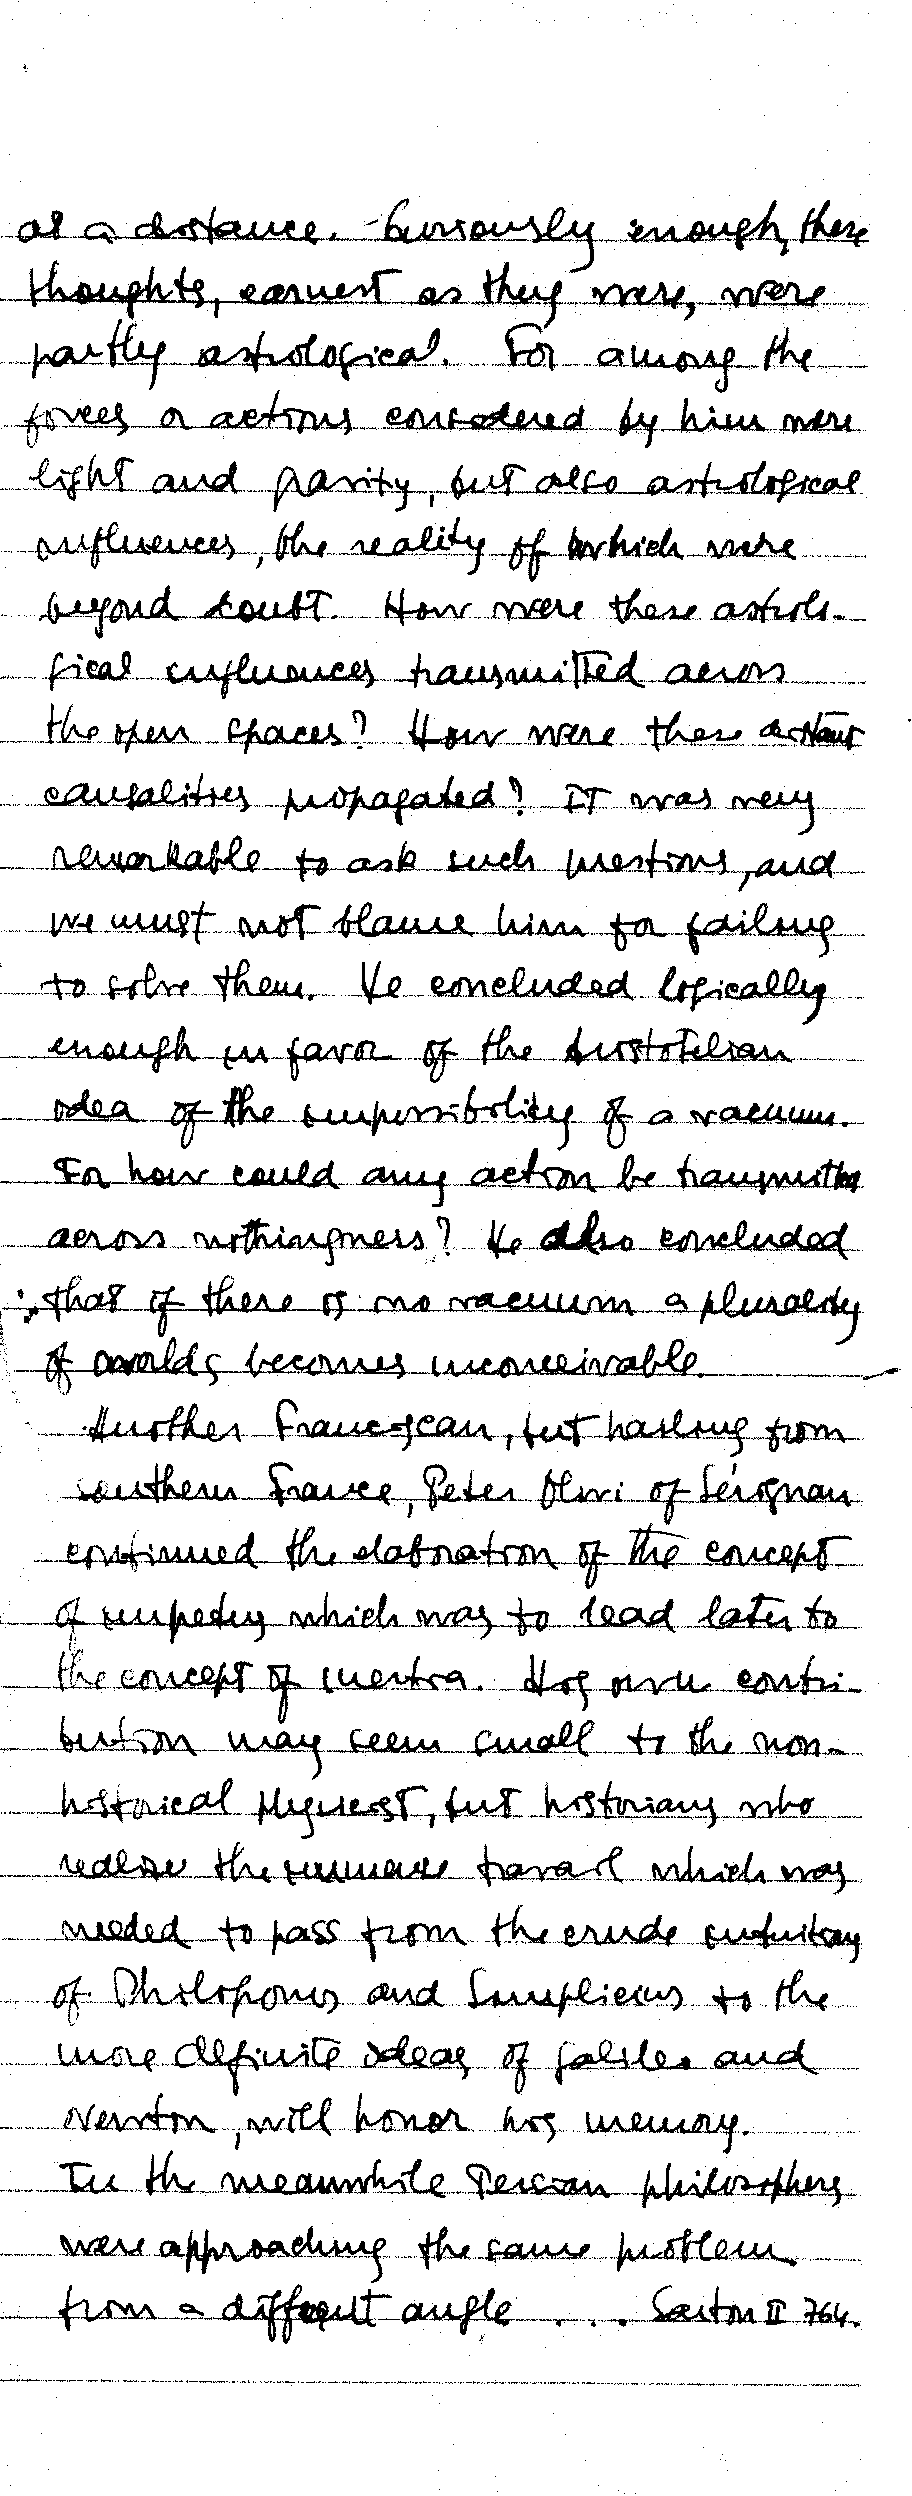 at a distance. Curiously enough, these
thoughts, earnest as they were, were
partly astrological. For among the
forces or actions considered by him were
light and gravity, but also astrological
influences, the reality of which were
beyond doubt. How were these astrolo-
gical influences transmitted across
the open spaces? How were these distant
causalities propagated? It was very
remarkable to ask such questions, and
we must not blame him for failing
to solve them. He concluded logically
enough in favor of the Aristotelian
idea of the impossibility of a vacuum.
For how could any action be transmitted
across nothingness? He also concluded
that if there is no vacuum a plurality
of worlds becomes inconceivable.
Another Franciscan, but hailing from
southern France, Peter Olivi of Sérignan
continued the elaboration of the concept
of impetus which was to lead later to
the concept of inertia. His own contri-
bution may seem small to the non-
historical physicist, but historians who
realize the immense travail which was
needed to pass from the crude intuitions
of Philoponos and Simplicius to the
more definite ideas of Galileo and
Newton, will honor his memory.
In the meanwhile Persian philosophers
were approaching the same problem
from a different angle .... Sarton II 764.